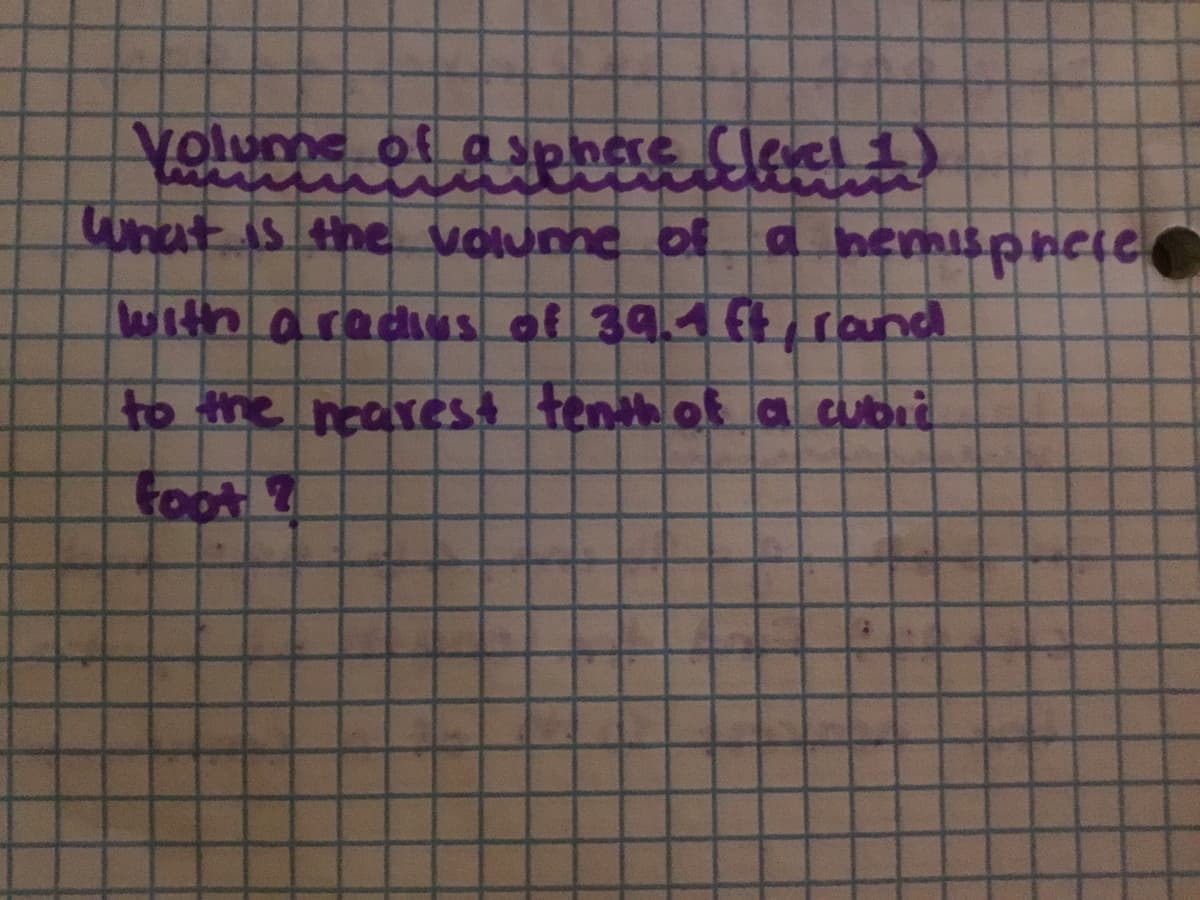 Volume of a sphere (level 1)
What is the volume of a hemisphere
with a radius of 39.1 ft, rand
to the nearest tenth of a cubic
foot ?